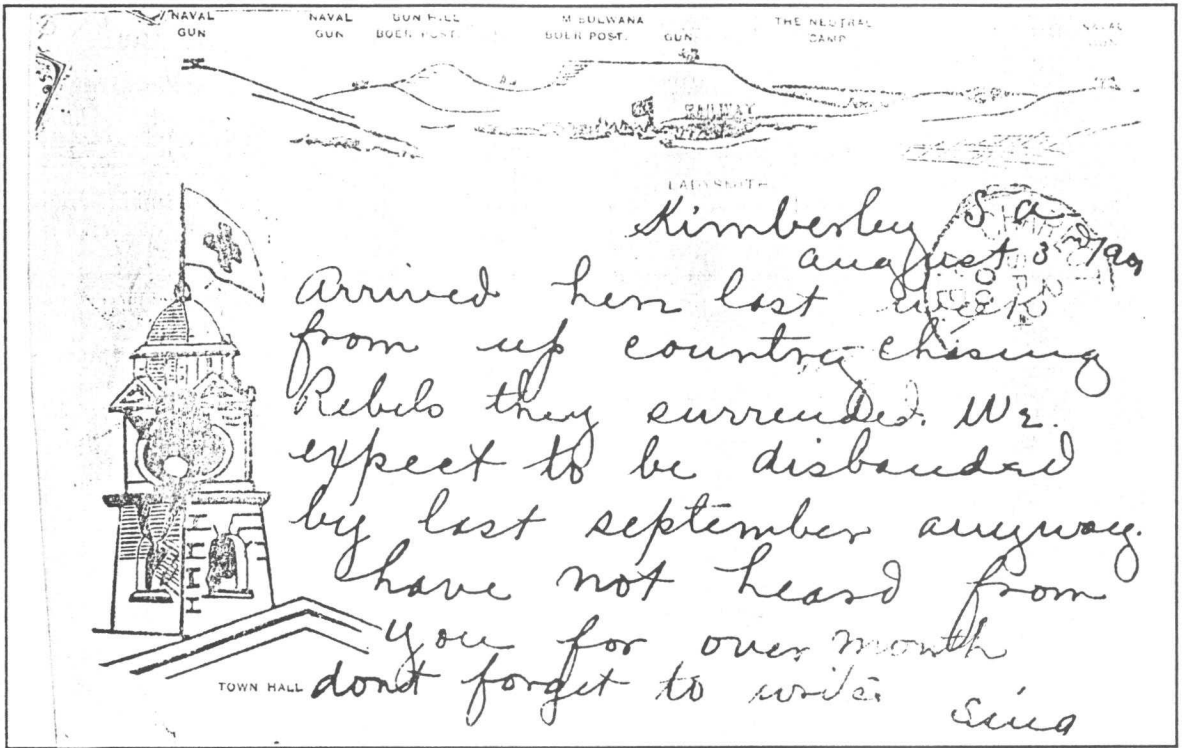 NAVAL GUN
NAVAL GUN
GUN HILL BOER POST.
M BULWANA BOER POST.
GUN
THE NEUTRAL CAMP
NAVAL GUN
RAILWAY
LADYSMITH
Kimberley S a
august 3rd
Arrived here last week
from up country chasing
Rebels they surrended. We.
expect to be disbanded
by last september anyway.
have not heard from
you for over month
TOWN HALL dont forget to write